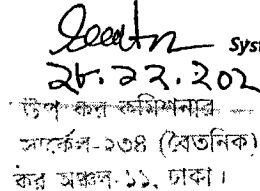 Syst
২৮.১২.২০২
উপ কর কমিশনার
সার্কেল-২৩৪ (বৈতনিক)
কর অঞ্চল-১১, ঢাকা।